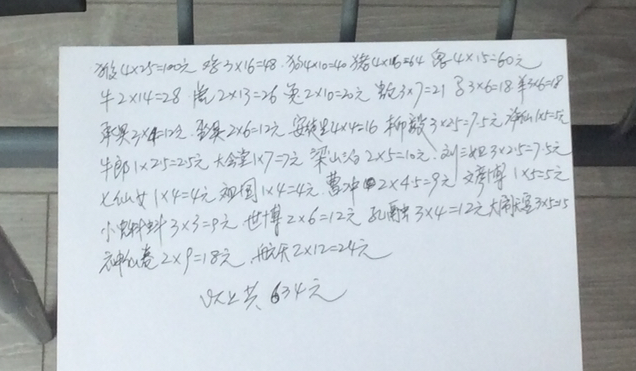 猴4×25=100元 鸡3×16=48. 狗4×10=40 猪4×16=64 4×15=60元
牛2×14=28 虎2×13=26 2×10=20元 3×7=21 3×6=18 羊3×6=18
3×4=12元 2×6=12元 安徒生4×4=16 柳毅3×2.5=7.5元 1×5=5元
牛郎1×2.5=2.5元 大会堂1×7=7元 梁山伯2×5=10元. 刘三姐3×2.5=7.5元
七仙女1×4=4元 祖国1×4=4元 曹冲2×4.5=9元 文彦博1×5=5元
小蝌蚪3×3=9元 世博2×6=12元 孔融3×4=12元 大闹天宫3×5=15
神仙卷2×9=18元, 航天2×12=24元
以上共634元